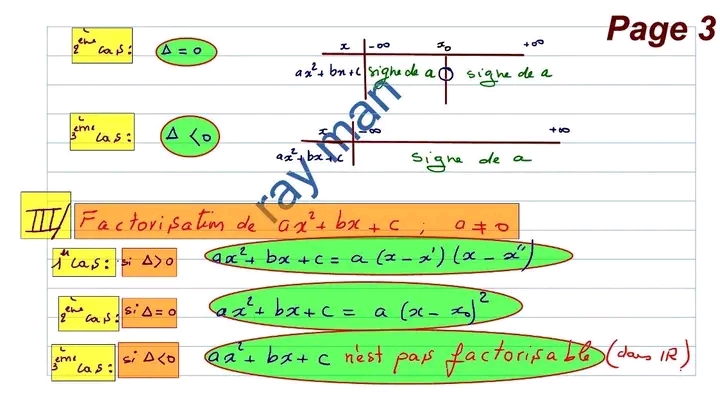 Page 3
2ème cas: Δ = 0
x -∞ x₀ +∞
ax²+bx+c signe de a 0 signe de a
3ème cas: Δ < 0
x -∞ +∞
ax²+bx+c signe de a
ray man
III/ Factorisation de ax²+bx+c ; a ≠ 0
1er cas: si Δ>0 ax²+bx+c = a (x-x') (x-x'')
2ème cas: si Δ=0 ax²+bx+c = a (x-x₀)²
3ème cas: si Δ<0 ax²+bx+c n'est pas factorisable (dans IR)